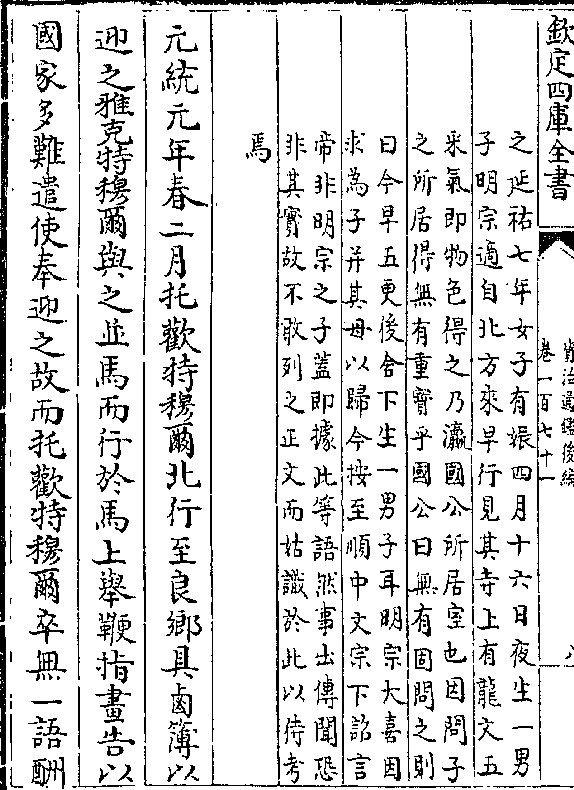 欽定四庫全書
資治通鑑後編
卷一百七十一
之延祐七年女子有娠四月十六日夜生一男
子明宗適自北方來早行見其寺上有龍文五
采氣即物色得之乃瀛國公所居室也因問子
之所居得無有重寶乎國公曰無有固問之則
曰今早五更後舍下生一男子耳明宗大喜因
求為子并其母以歸今按至順中文宗下詔言
帝非明宗之子蓋即據此等語然事出傳聞恐
非其實故不敢列之正文而姑識於此以侍考
焉
元統元年春二月托歡特穆爾北行至良鄉具鹵簿以
迎之雅克特穆爾與之並馬而行於馬上舉鞭指畫告以
國家多難遣使奉迎之故而托歡特穆爾卒無一語酬